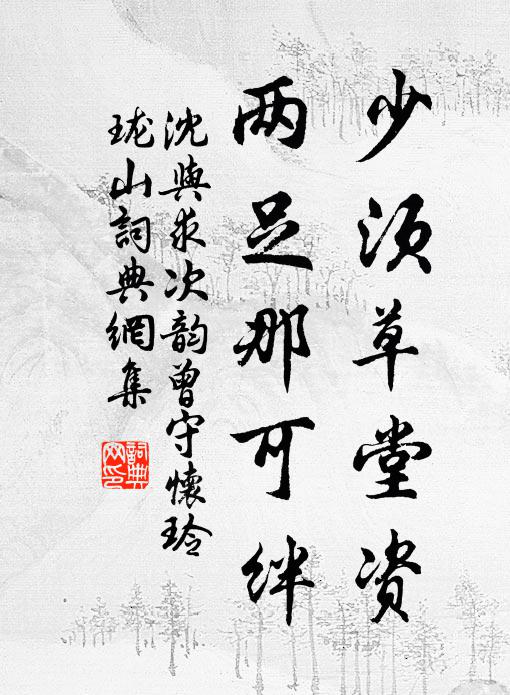 少须草堂资
两足那可绊
沈與求次韵曾守懷玲
瓏山詞典網集
詞典网印